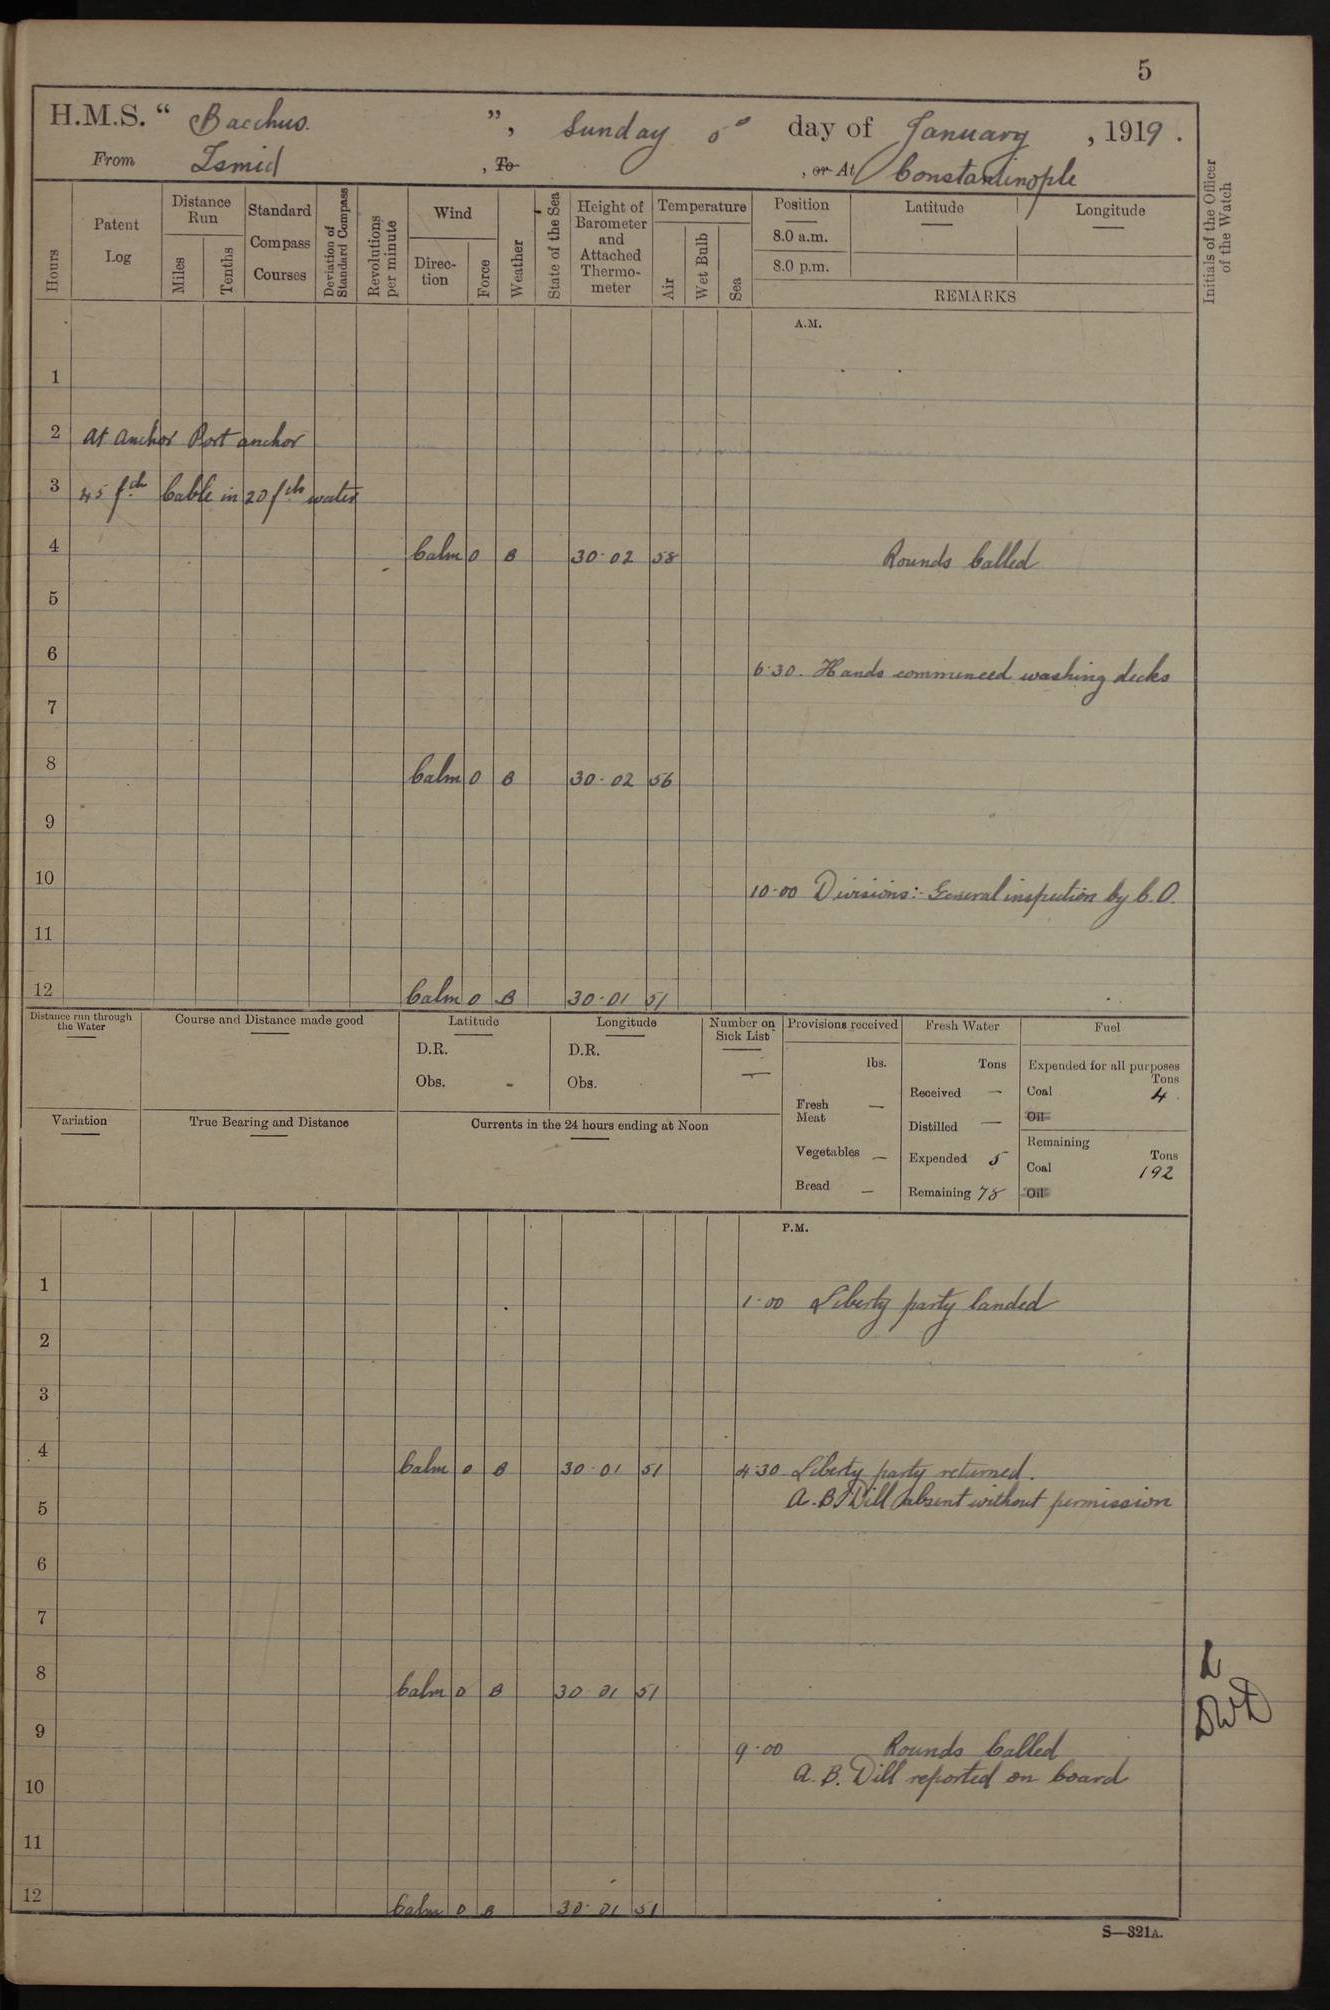 5
H.M.S. “ Bacchus. ”, Sunday 5th day of January, 1919.
From Ismid, To , or At Constantinople
Hours
Patent Log
Distance Run
Miles
Tenths
Standard Compass Courses
Deviation of Standard Compass
Revolutions per minute
Wind
Direction
Force
Weather
State of the Sea
Height of Barometer and Attached Thermometer
Temperature
Air
Wet Bulb
Sea
Position
8.0 a.m.
8.0 p.m.
Latitude
Longitude
REMARKS
Initials of the Officer of the Watch
A.M.
1
2 At Anchor Port anchor
3 45 fth Cable in 20 fth water
4 Calm 0 B 30.02 58 Rounds Called
5
6 6.30. Hands commenced washing decks
7
8 Calm 0 B 30.02 56
9
10 10.00 Divisions:- General inspection by C.O.
11
12 Calm 0 B 30.01 51
Distance run through the Water
Course and Distance made good
Latitude
D.R.
Obs. -
Longitude
D.R.
Obs.
Number on Sick List
—
Provisions received
lbs.
Fresh Meat —
Vegetables —
Bread —
Fresh Water
Tons
Received —
Distilled —
Expended 5
Remaining 78
Fuel
Expended for all purposes
Tons
Coal 4
Oil
Remaining
Tons
Coal 192
Oil
Variation
True Bearing and Distance
Currents in the 24 hours ending at Noon
P.M.
1 1.00 Liberty party landed
2
3
4 Calm 0 B 30.01 51 4.30 Liberty party returned.
A.B. Dill absent without permission
5
6
7
8 Calm 0 B 30 01 51
9 9.00 Rounds Called
A.B. Dill reported on board
10
11
12 Calm 0 B 30.01 51
S—321A.